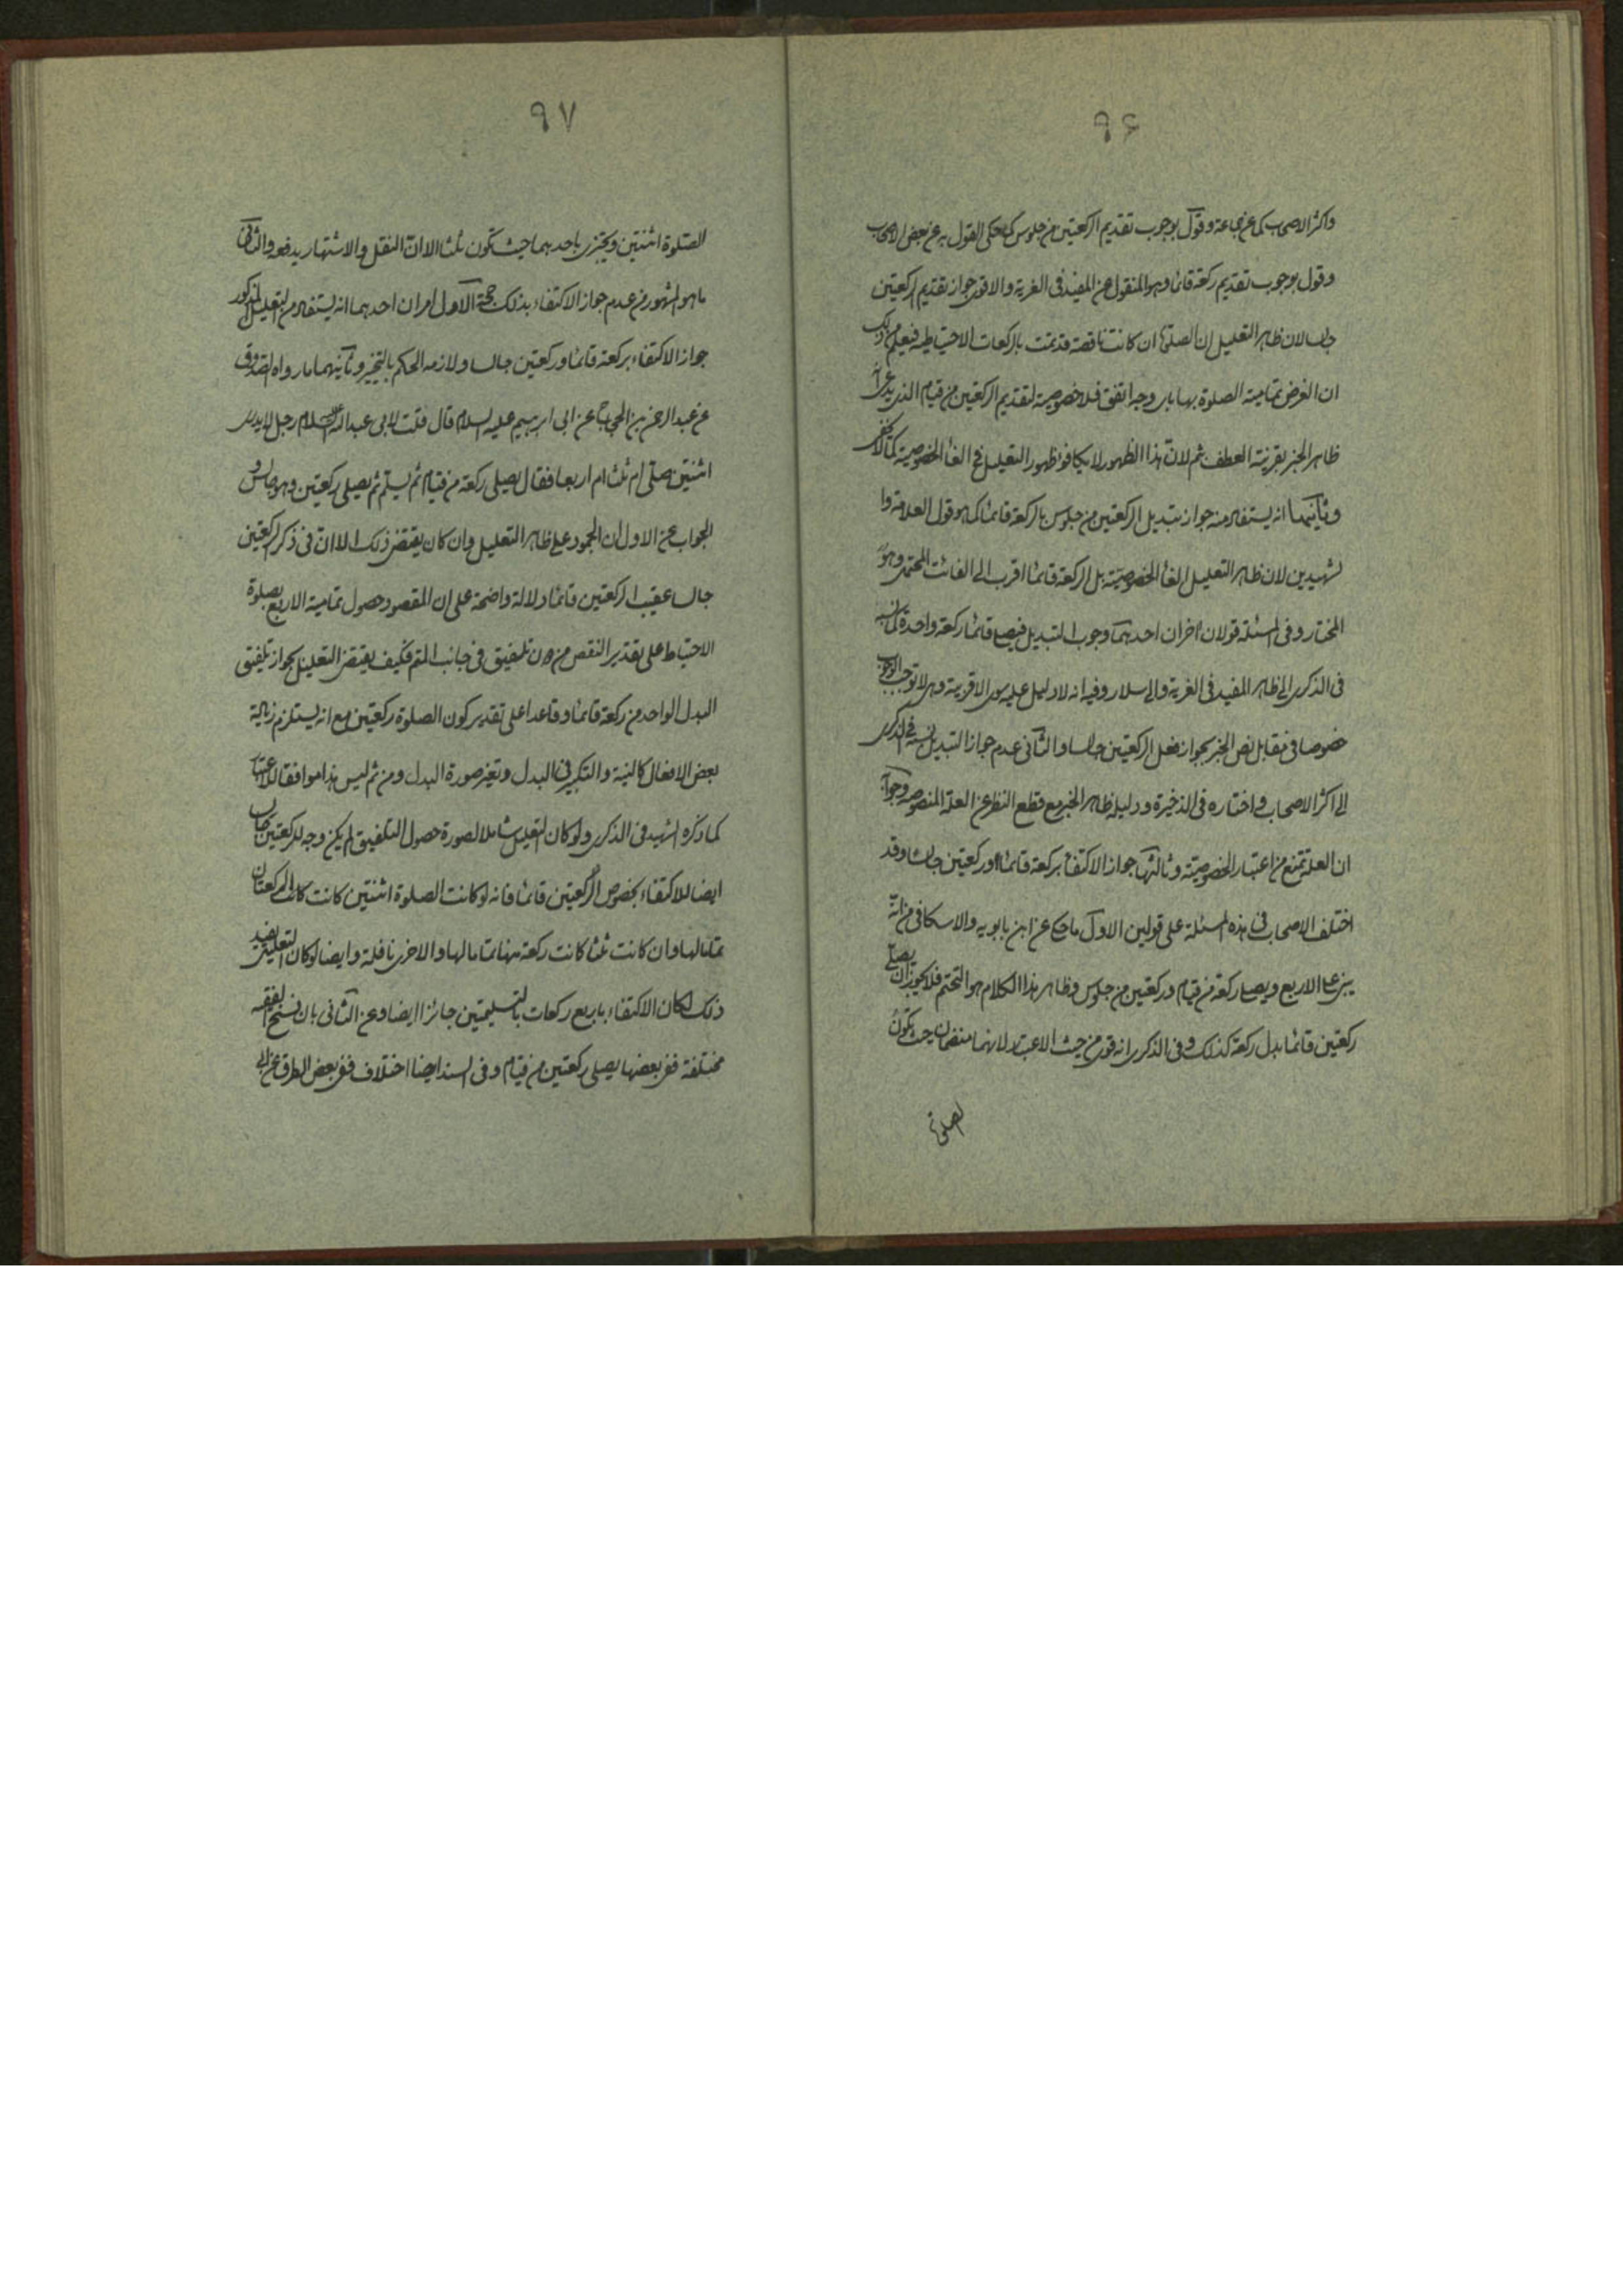 ٩۶
واكثر الاصحاب كما عن جماعة وقول بوجوب تقديم الركعتين من جلوس كما حكى القول به عن بعض الاصحاب
وقول بوجوب تقديم ركعة قائما وهو المنقول عن المفيد فى الغرية والاقوى جواز تقديم الركعتين
جالسا لان ظاهر التعليل ان الصلوة ان كانت ناقصة قد تمت بالركعات الاحتياطية فيعلم من ذلك
ان الغرض تمامية الصلوة بها باى وجه اتفق فلا خصوصية لتقديم الركعتين من قيام الذى يدعى
ظاهر الخبر بقرينة العطف بثم لان هذا الظهور لا يكافؤ ظهور التعليل فى الغاء الخصوصية كما لا يخفى
وثانيهما انه يستفاد منه جواز تبديل الركعتين من جلوس بالركعة قائما كما هو قول العلامة وا
لشهيدين لان ظاهر التعليل الغاء الخصوصية بل الركعة قائما اقرب الى الفائت المحتمل وهو
المختار وفى المسئلة قولان اخران احدهما وجوب التبديل فيصلى قائما ركعة واحدة كما نسبه
فى الذكرى الى ظاهر المفيد فى الغرية والى سلار وفيه انه لا دليل عليه سوى الاقربية وهى لا توجب الوجوب
خصوصا فى مقابل نص الخبر بجواز فعل الركعتين جالسا والثانى عدم جواز التبديل نسبه فى الذكرى
الى اكثر الاصحاب واختاره فى الذخيرة ودليله ظاهر الخبر مع قطع النظر عن العلة المنصوصه وجوابه
ان العلة تمنع من اعتبار الخصوصية وثالثها جواز الاكتفاء بركعة قائما او ركعتين جالسا وقد
اختلف الاصحاب فى هذه المسئلة على قولين الاول ما حكى عن ابن بابويه والاسكافى من انه
يبنى على الاربع ويصلى ركعة من قيام وركعتين من جلوس وظاهر هذا الكلام هو التحتم فلا يجوز ان يصلى
ركعتين قائما بدل ركعة كذلك وفى الذكرى انه قوى من حيث الاعتبار لانهما منضمان حيث تكون
الصلوة
٩٧
الصلوة اثنتين ويجتزى باحديهما حيث تكون ثلثا الا ان النقل والاشتهار يدفعه والثانى
ما هو المشهور من عدم جواز الاكتفاء بذلك حجة الاول امران احدهما انه يستفاد من التعليل المذكور
جواز الاكتفاء بركعة قائما وركعتين جالسا ولازمه الحكم بالتخيير وثانيهما ما رواه الصدوق
عن عبد الرحمن بن الحجاج عن ابى ابرهيم عليه السلام قال قلت لابى عبد الله عليه السلام رجل لا يدرى
اثنتين صلى ام ثلث ام اربعا فقال يصلى ركعة من قيام ثم يسلم ثم يصلى ركعتين وهو جالس و
الجواب عن الاول ان الجمود على ظاهر التعليل وان كان يقتضى ذلك الا ان فى ذكر الركعتين
جالسا عقيب الركعتين قائما دلالة واضحة على ان المقصود حصول تمامية الاربع بصلوة
الاحتياط على تقدير النقص من دون تلفيق فى جانب المتم فكيف يقتضى التعليل بجواز تلفيق
البدل الواحد من ركعة قائما وقاعدا على تقدير كون الصلوة ركعتين مع انه يستلزم زيادة
بعض الافعال كالنية والتكبير فى البدل وتغير صورة البدل ومن ثم ليس هذا موافقا للاعتبار
كما ذكره الشهيد فى الذكرى ولو كان التعليل شاملا لصورة حصول التلفيق لم يكن وجه للركعتين جالسا
ايضا للاكتفاء بخصوص الركعتين قائما فانه لو كانت الصلوة اثنتين كانت كانت الركعتان
تماما لها وان كانت ثلثا كانت ركعة منها تماما لها والاخرى نافلة وايضا لو كان التعليل يفيد
ذلك لكان الاكتفاء باربع ركعات بالتسليمتين جائزا ايضا وعن الثانى بان نسخ الفقيه
مختلفة ففى بعضها يصلى ركعتين من قيام وفى السند ايضا اختلاف ففى بعض الطرق عن ابى